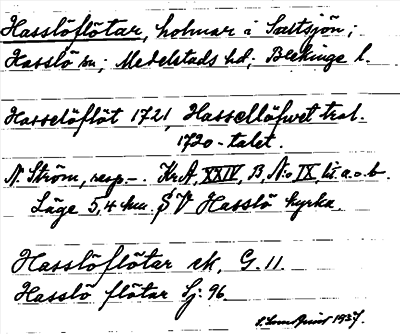 Hasslöflötar, holmar i Saltsjön;
Hasslö sn; Medelstads hd; Blekinge l.
Hasselöflöt 1721, Hassellöfwet trol.
1720-talet.
N. Ström, resp. -. Kr.A, XXIV, B, N:o IX, lit a. o. b.
Läge 5,4 km. SV Hasslö kyrka.
Hasslöflötar ek, G. 11.
Hasslö flötar Sj. 96.
1937.